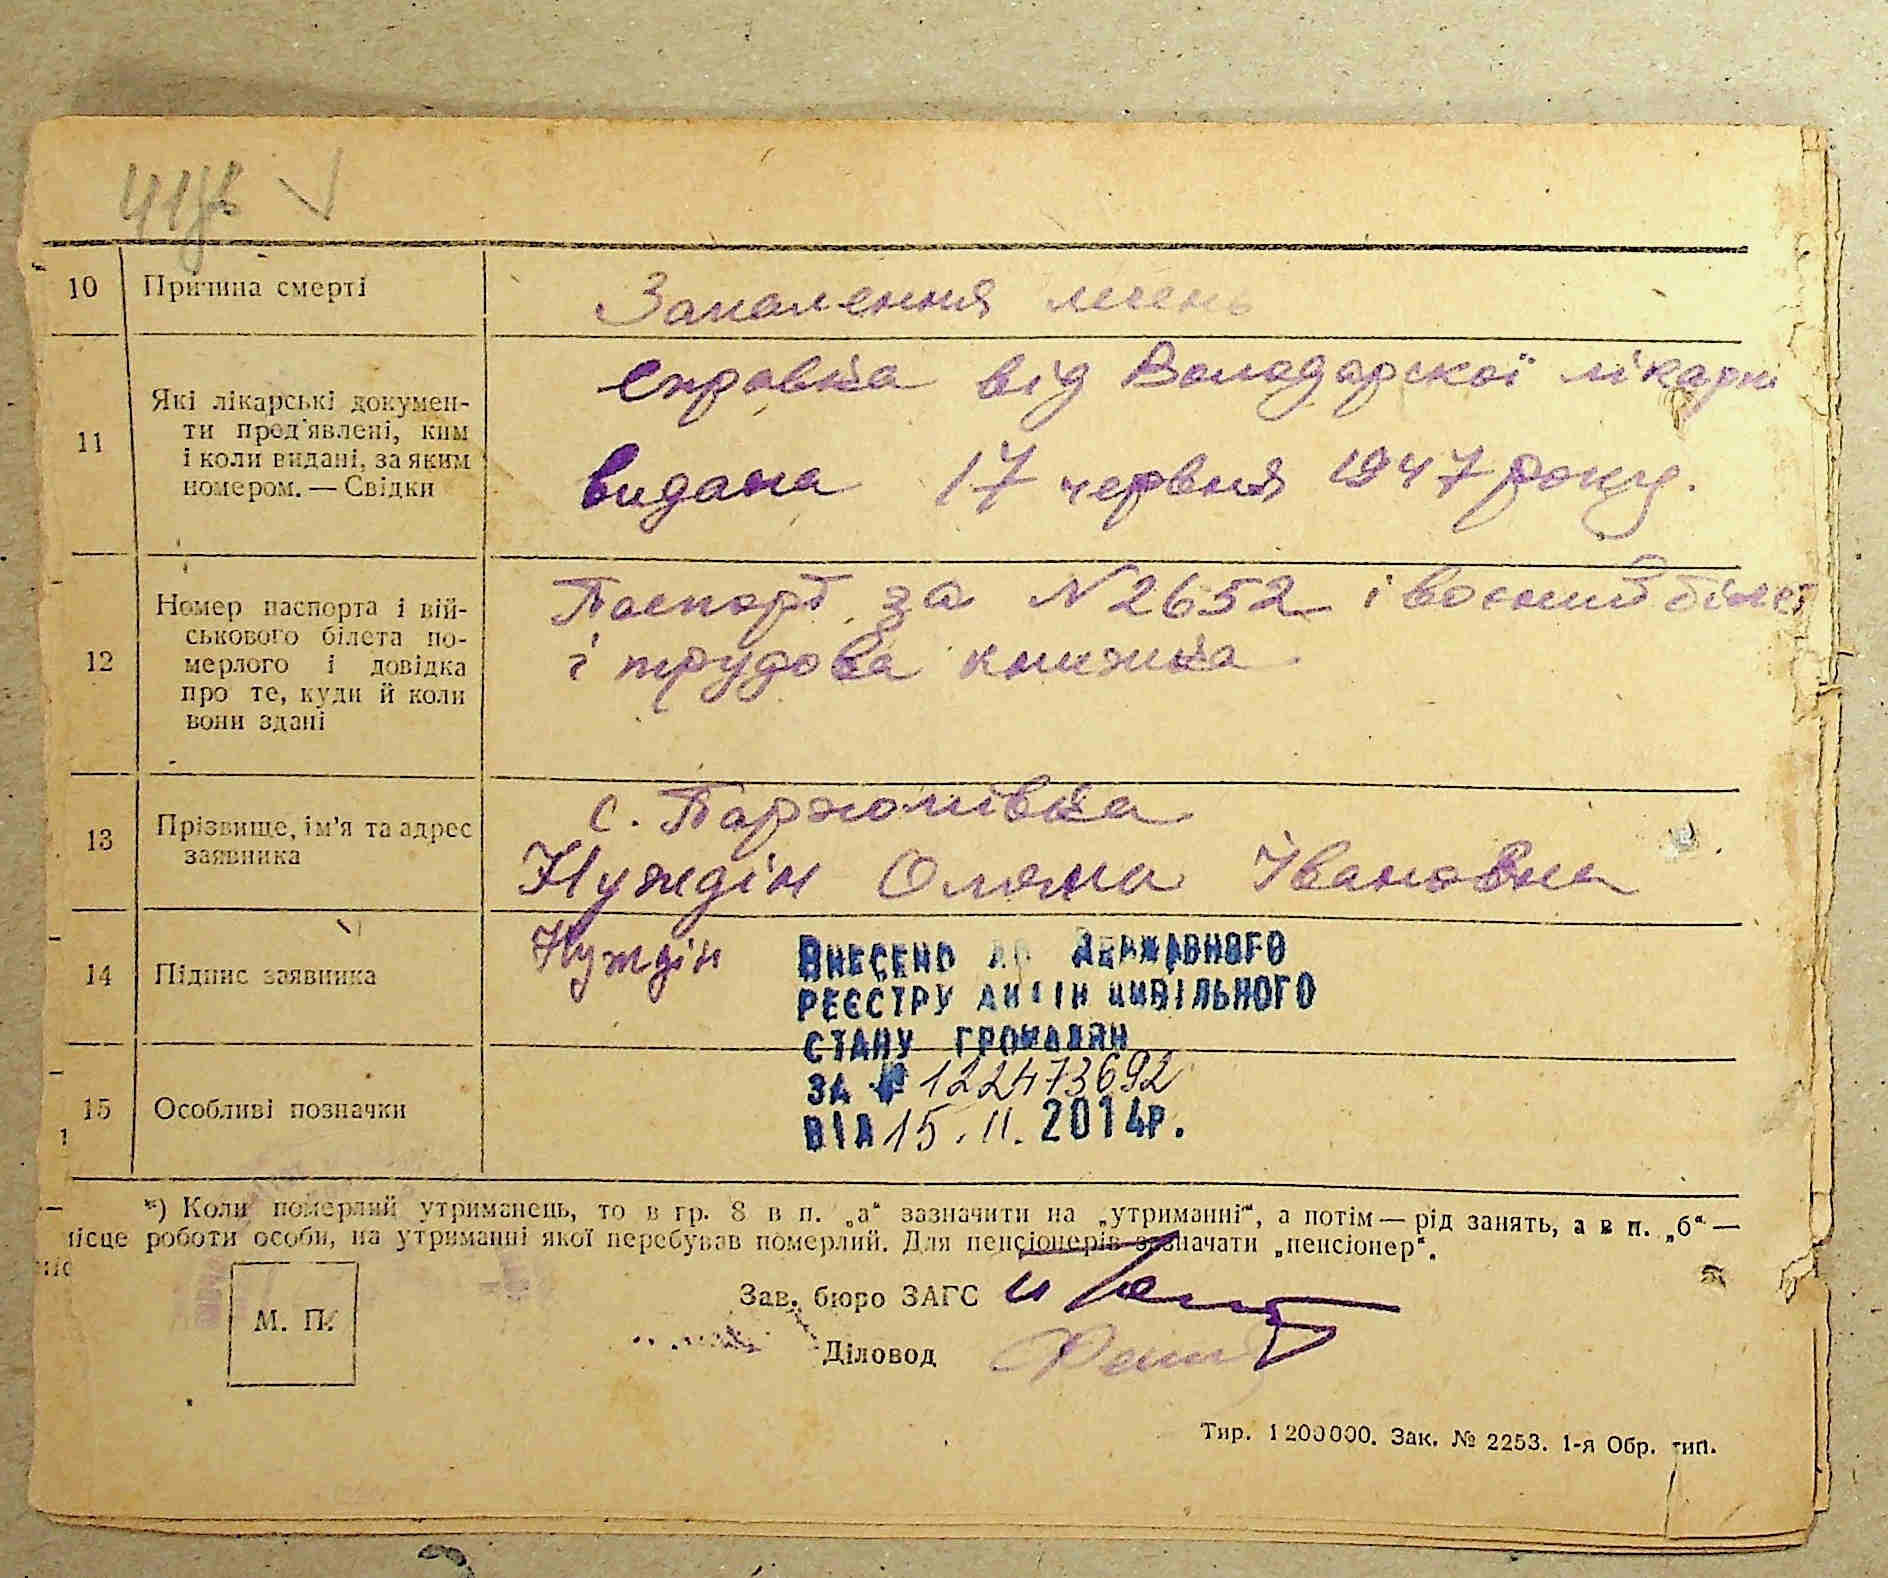 10 Причина смерті Запалення лечень
11 Які лікарські докумен-
ти пред'явлені, ким
і коли видані, за яким
номером. — Свідки
справка від Володарскої лікарні
видана 17 червня 1947 року.
12 Номер паспорта і вій-
ськового білета по-
мерлого і довідка
про те, куди й коли
вони здані
Паспорт за N 2652 і военний білет
і трудова книжка
13 Прізвище, ім'я та адрес
заявника
с. Пархомівка
Нуждін Оляна Івановна
14 Підпис заявника Нуждін
ВНЕСЕНО ДО ДЕРЖАВНОГО
РЕЄСТРУ АКТІВ ЦИВІЛЬНОГО
СТАНУ ГРОМАДЯН
ЗА № 122473692
ВІД 15.11.2014р.
15 Особливі позначки
*) Коли померлий утриманець, то в гр. 8 в п. „а" зазначити на „утриманні", а потім — рід занять, а в п. „б" —
місце роботи особи, на утриманні якої перебував померлий. Для пенсіонерів зазначати „пенсіонер".
М. П.
Зав. бюро ЗАГС
Діловод
Тир. 1 200000. Зак. № 2253. 1-я Обр. тип.